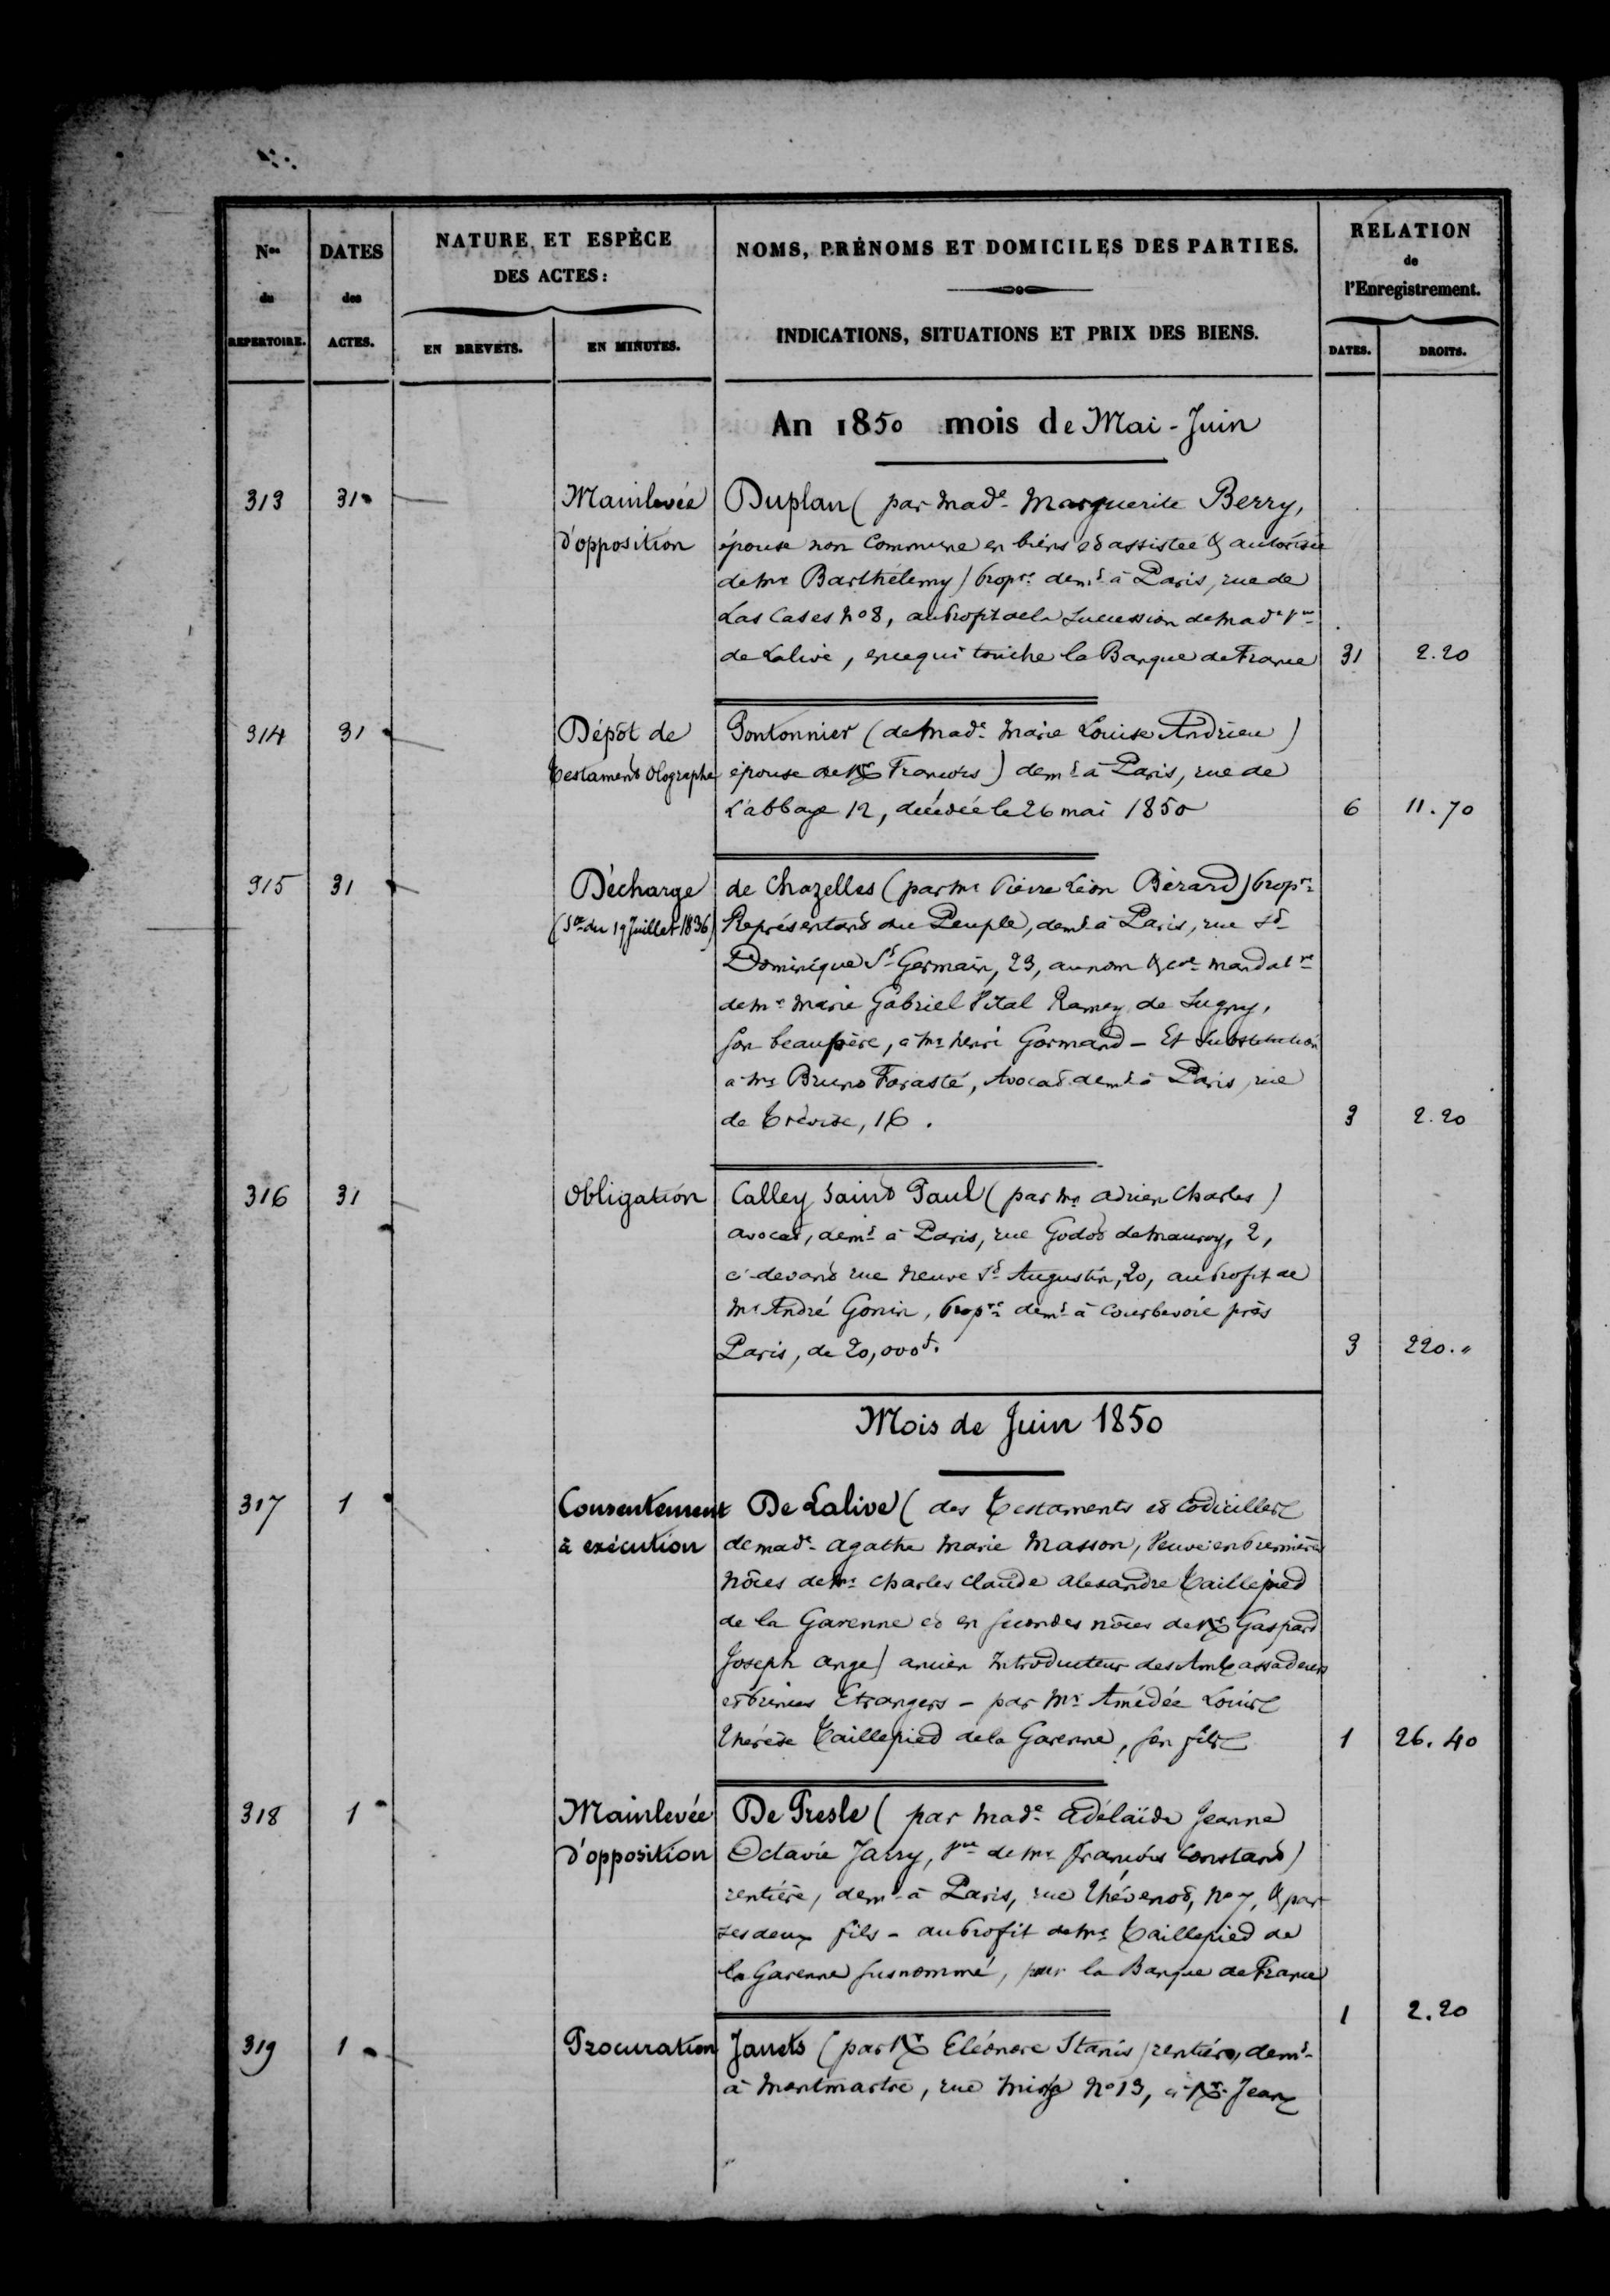 Nos du REPERTOIRE.
DATES des ACTES.
NATURE ET ESPÈCE DES ACTES:
EN BREVETS.
EN MINUTES.
NOMS, PRÉNOMS ET DOMICILES DES PARTIES.
INDICATIONS, SITUATIONS ET PRIX DES BIENS.
RELATION de l'Enregistrement.
DATES.
DROITS.
An 1850 mois de Mai - Juin
313 31 Mainlevée Duplan ( par made Marguerite Berry,
d'opposition épouse non Commune en biens et assistée & autorisée
de Mr Barthélemy ) propre demt à Paris, rue de
Las Cases No 8, au profit de la Succession de made Ve
de Lalive, en ce qui touche la Banque de France 31 2.20
314 31 Dépôt de Pontonnier (de made Marie Louise Andrieu )
testament olographe épouse de Mr François ) demt à Paris, rue de
L'abbaye 12, décédée le 26 mai 1850 6 11.70
315 31 Décharge de Chazelles (par Mr Pierre Léon Bérard) propre
(Ste du 19 Juillet 1836) Représentant du Peuple, demt à Paris, rue St
Dominique St Germain, 23, au nom & cme mandatre
de Mr Marie Gabriel Vital Ramey de Sugny,
son beaupère, à Mr henri Gormand - Et Substitution
à Mr Bruno Farasté, Avocat demt à Paris, rue
de Trévise, 16. 3 2.20
316 31 Obligation Calley Saint Paul ( par Mr Adrien Charles )
avocat, demt à Paris, rue Godot de Mauroy, 2,
ci-devant rue Neuve St Augustin, 20, au profit de
Mr André Gonin, propre demt à Courbevoie près
Paris, de 20,000f. 3 220."
Mois de Juin 1850
317 1 Consentement De Lalive ( des Testaments et codicilles
à exécution de made Agathe Marie Masson, Veuve en premières
nôces de Mr Charles Claude Alexandre Taillepied
de la Garenne et en secondes nôces de Mr Gaspard
Joseph Ange ) ancien Introducteur des Ambassadeurs
et princes Etrangers - par Mr Amédée Louis
Thérèse Taillepied de la Garenne, son fils 1 26.40
318 1 Mainlevée De Presle ( par made Adélaïde Jeanne
d'opposition Octavie Jarry, Ve de Mr François Constant )
rentière, demt à Paris, rue Thévenot, No 7, & par
ses deux fils - au profit de Mr Taillepied de
la Garenne susnommé, pour la Banque de France
1 2.20
319 1 Procuration Janets (par Mr Eléonore Stanis ) rentier, demt
à Montmartre, rue No 13, à Mr Jean